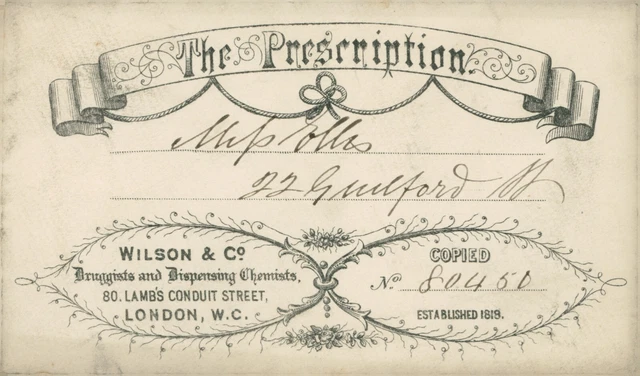 The Prescription.
Miss Ellis
22 Guilford St
WILSON & Co
Druggists and Dispensing Chemists,
80. LAMB'S CONDUIT STREET,
LONDON, W.C.
COPIED
No 80450
ESTABLISHED 1819.